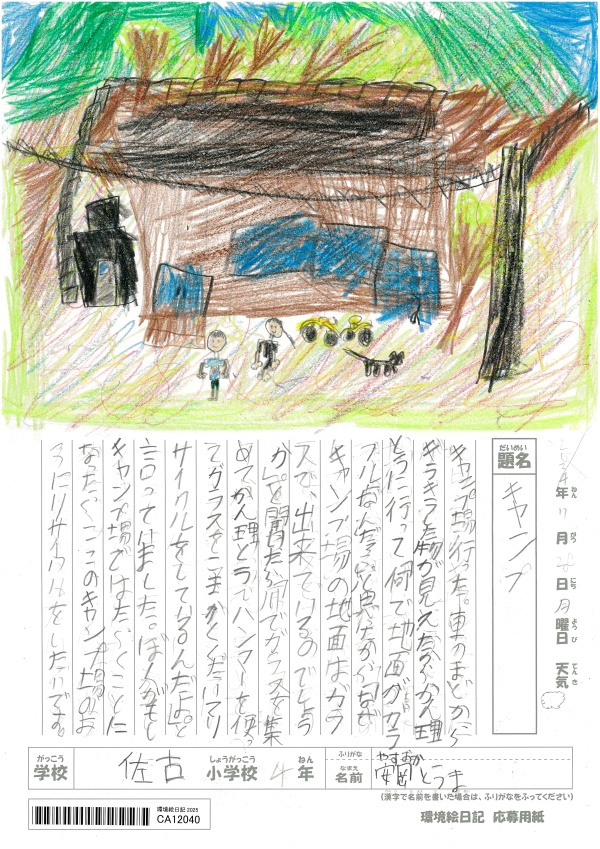 年 月 日 月曜日 天気
ねん がつ にち ようび てんき
だいめい
題名
キャンプ
キャンプ場に行った。車のまどから
キラキラした物が見えたから、かん理
とうに行って「何で地面がカラ
フルなんだろう」と思ったから「なぜ
キャンプ場の地面はガラ
スで、出来ているのでしょう
か」と聞いたら「何でガラスを集
めてかん理とうでハンマーを使っ
てグラスをこまかくくだいてリ
サイクルをしているんだよ。」と
言ってけました。ぼくがもし
キャンプ場ではたらくことに
なたらここのキャンプ場のよ
うにリサイクルをしたいです。
がっこう
学校
佐古
しょうがっこう
小学校
4
ねん
年
ふりがな
やすおか
なまえ
名前
安岡 とうま
(漢字で名前を書いた場合は、ふりがなをふってください)
環境絵日記 2025
CA12040
環境絵日記 応募用紙